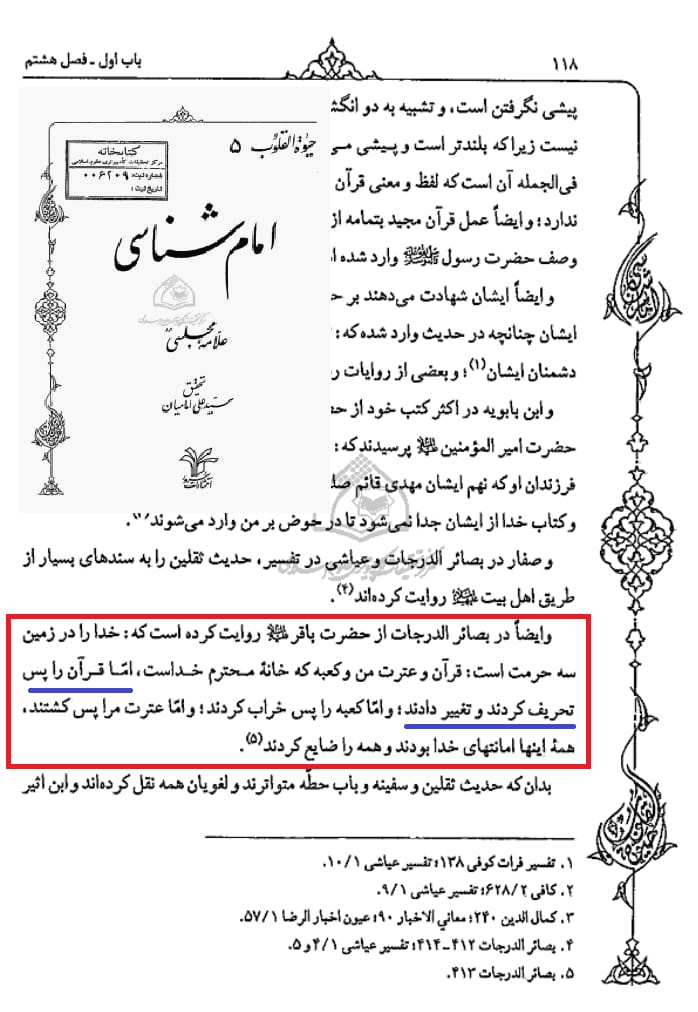 باب اول ـ فصل هشتم
۱۱۸
پیشی نگرفتن است، و تشبیه به دو انگشت
نیست زیراکه بلندتر است و پیشی می
فی‌الجمله آن است که لفظ و معنی قرآن
ندارد؛ و ایضاً عمل قرآن مجید بتمامه از
وصف حضرت رسول ﷺ وارد شده
و ایضاً ایشان شهادت می‌دهند بر
ایشان چنانچه در حدیث وارد شده که:
دشمنان ایشان(۱)؛ و بعضی از روایات
و ابن بابویه در اکثر کتب خود از
حضرت امیر المؤمنین علیه السلام پرسیدند که:
فرزندان او که نهم ایشان مهدی قائم
و کتاب خدا از ایشان جدا نمی‌شود تا در حوض بر من وارد می‌شوند
و صفار در بصائر الدرجات و عیاشی در تفسیر، حدیث ثقلین را به سندهای بسیار از
طریق اهل بیت علیهم السلام روایت کرده‌اند(۴).
و ایضاً در بصائر الدرجات از حضرت باقر علیه السلام روایت کرده است که: خدا را در زمین
سه حرمت است: قرآن و عترت من و کعبه که خانهٔ محترم خداست، امّا قرآن را پس
تحریف کردند و تغییر دادند؛ و امّا کعبه را پس خراب کردند؛ و امّا عترت مرا پس کشتند،
همهٔ اینها امانتهای خدا بودند و همه را ضایع کردند(۵).
بدان که حدیث ثقلین و سفینه و باب حطّه متواترند و لغویان همه نقل کرده‌اند و ابن اثیر
۱. تفسیر فرات کوفی ۱۳۸؛ تفسیر عیاشی ۱۰/۱.
۲. کافی ۶۲۸/۲؛ تفسیر عیاشی ۹/۱.
۳. کمال الدین ۲۴۰؛ معانی الاخبار ۹۰؛ عیون اخبار الرضا ۵۷/۱.
۴. بصائر الدرجات ۴۱۲ـ۴۱۴؛ تفسیر عیاشی ۴/۱ و ۵.
۵. بصائر الدرجات ۴۱۳.
حیوة القلوب ۵
کتابخانه
مرکز تحقیقات کامپیوتری علوم اسلامی
شماره ثبت: ۰۰۶۲۰۹
تاریخ ثبت:
امام شناسی
علامه مجلسی
تحقیق
سید علی امامیان